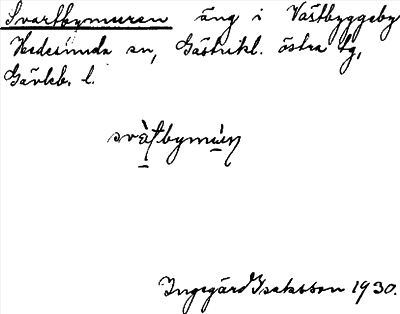 Svartbymuren äng i Västbyggeby
Hedesunda sn, Gästrikl. östra tg,
Gävleb. l.
svàṭbymu̱ṛṇ
Ingegärd Isaksson 1930.